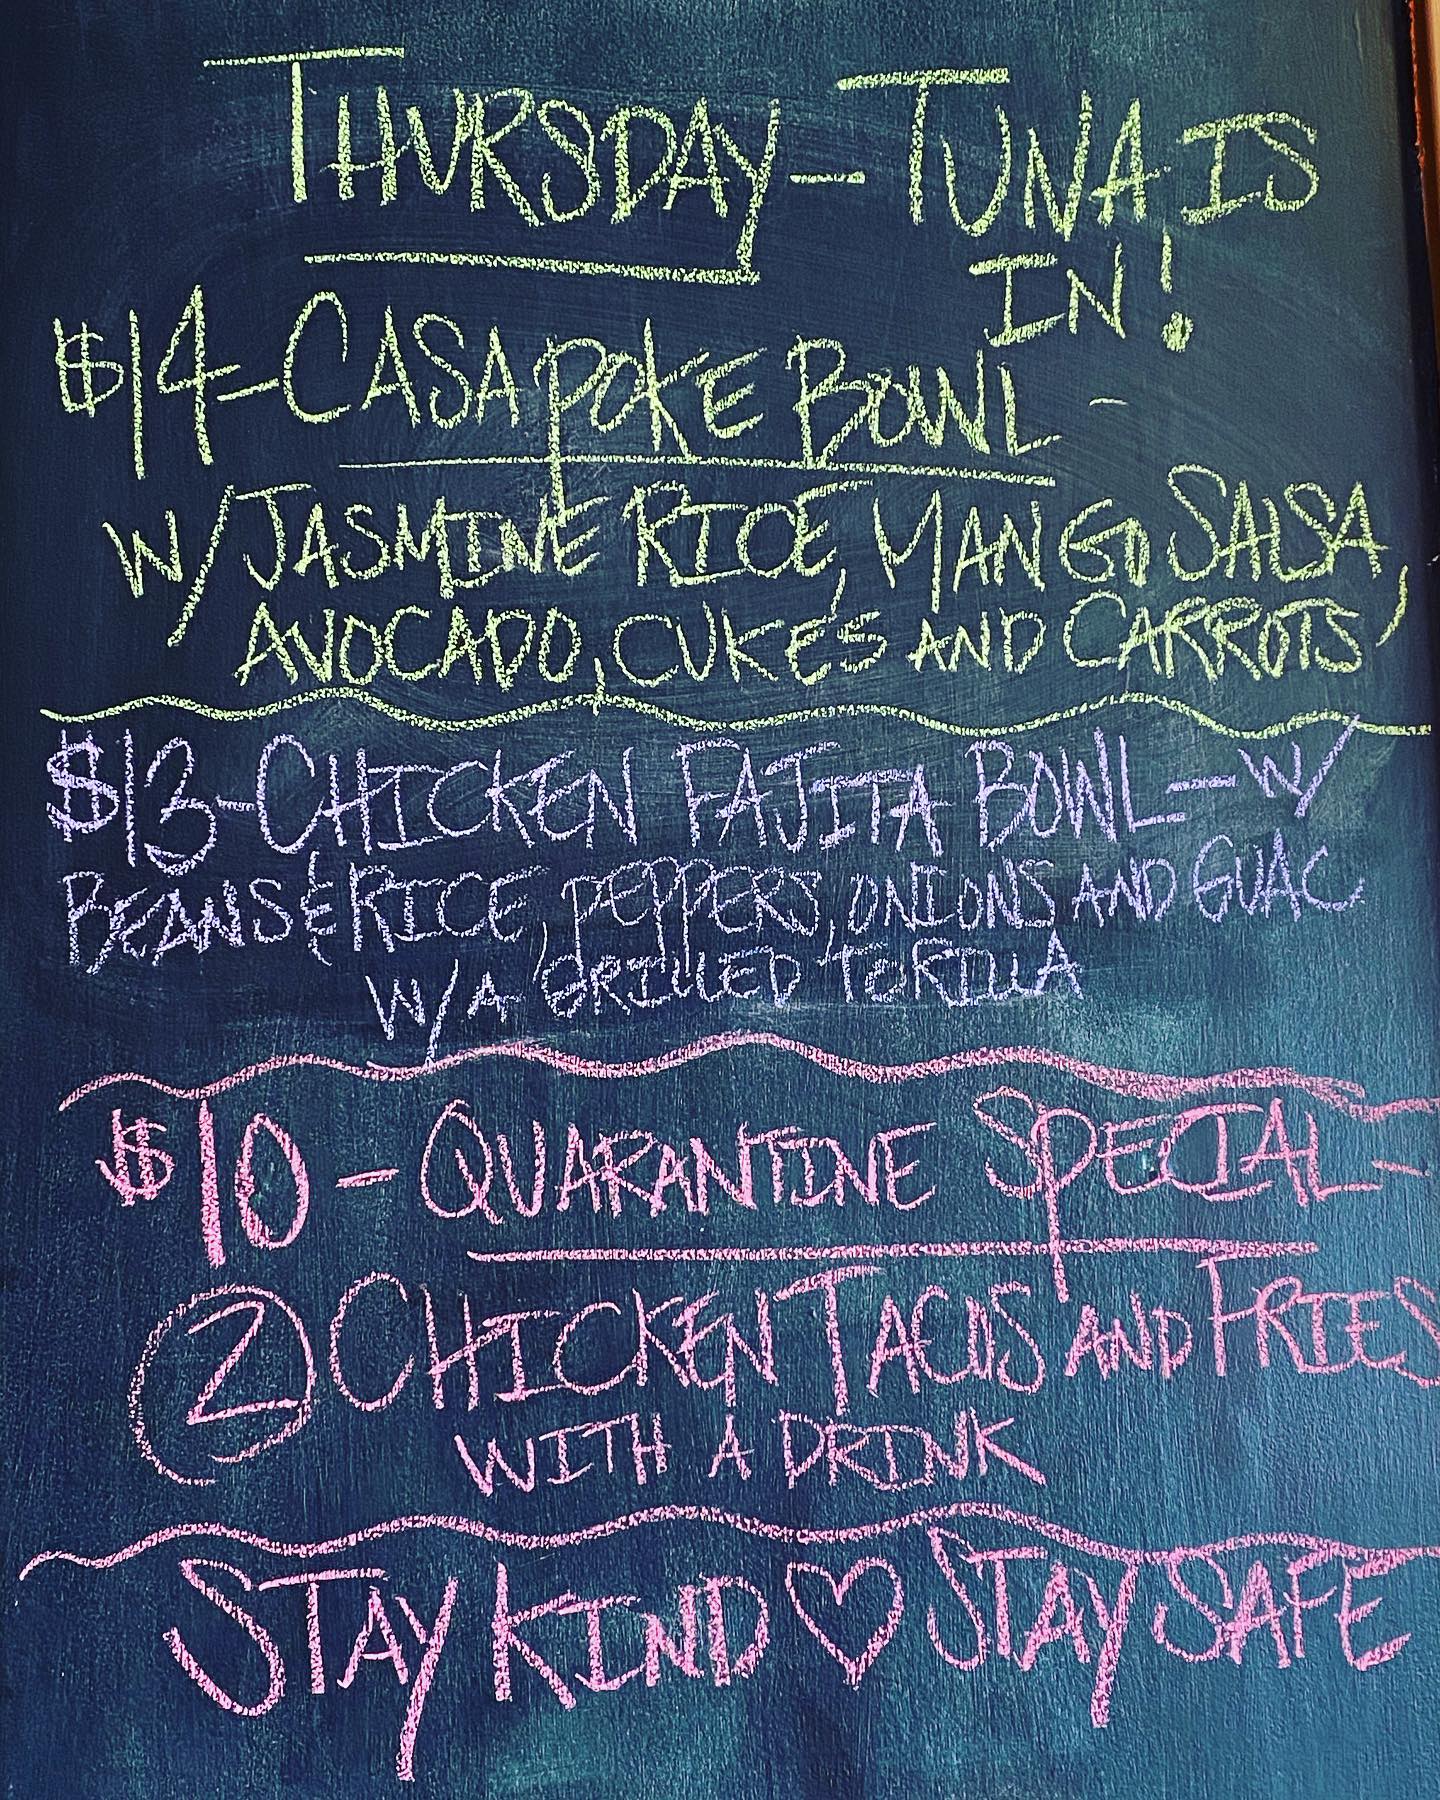 THURSDAY - TUNA IS
IN!
$14 - CASA POKE BOWL -
W/ JASMINE RICE, MANGO SALSA,
AVOCADO, CUKES AND CARROTS
$13 - CHICKEN FAJITA BOWL - W/
BEANS & RICE, PEPPERS, ONIONS AND GUAC
W/A GRILLED TORTILLA
$10 - QUARANTINE SPECIAL -
2 CHICKEN TACOS AND FRIES
WITH A DRINK
STAY KIND ♡ STAY SAFE